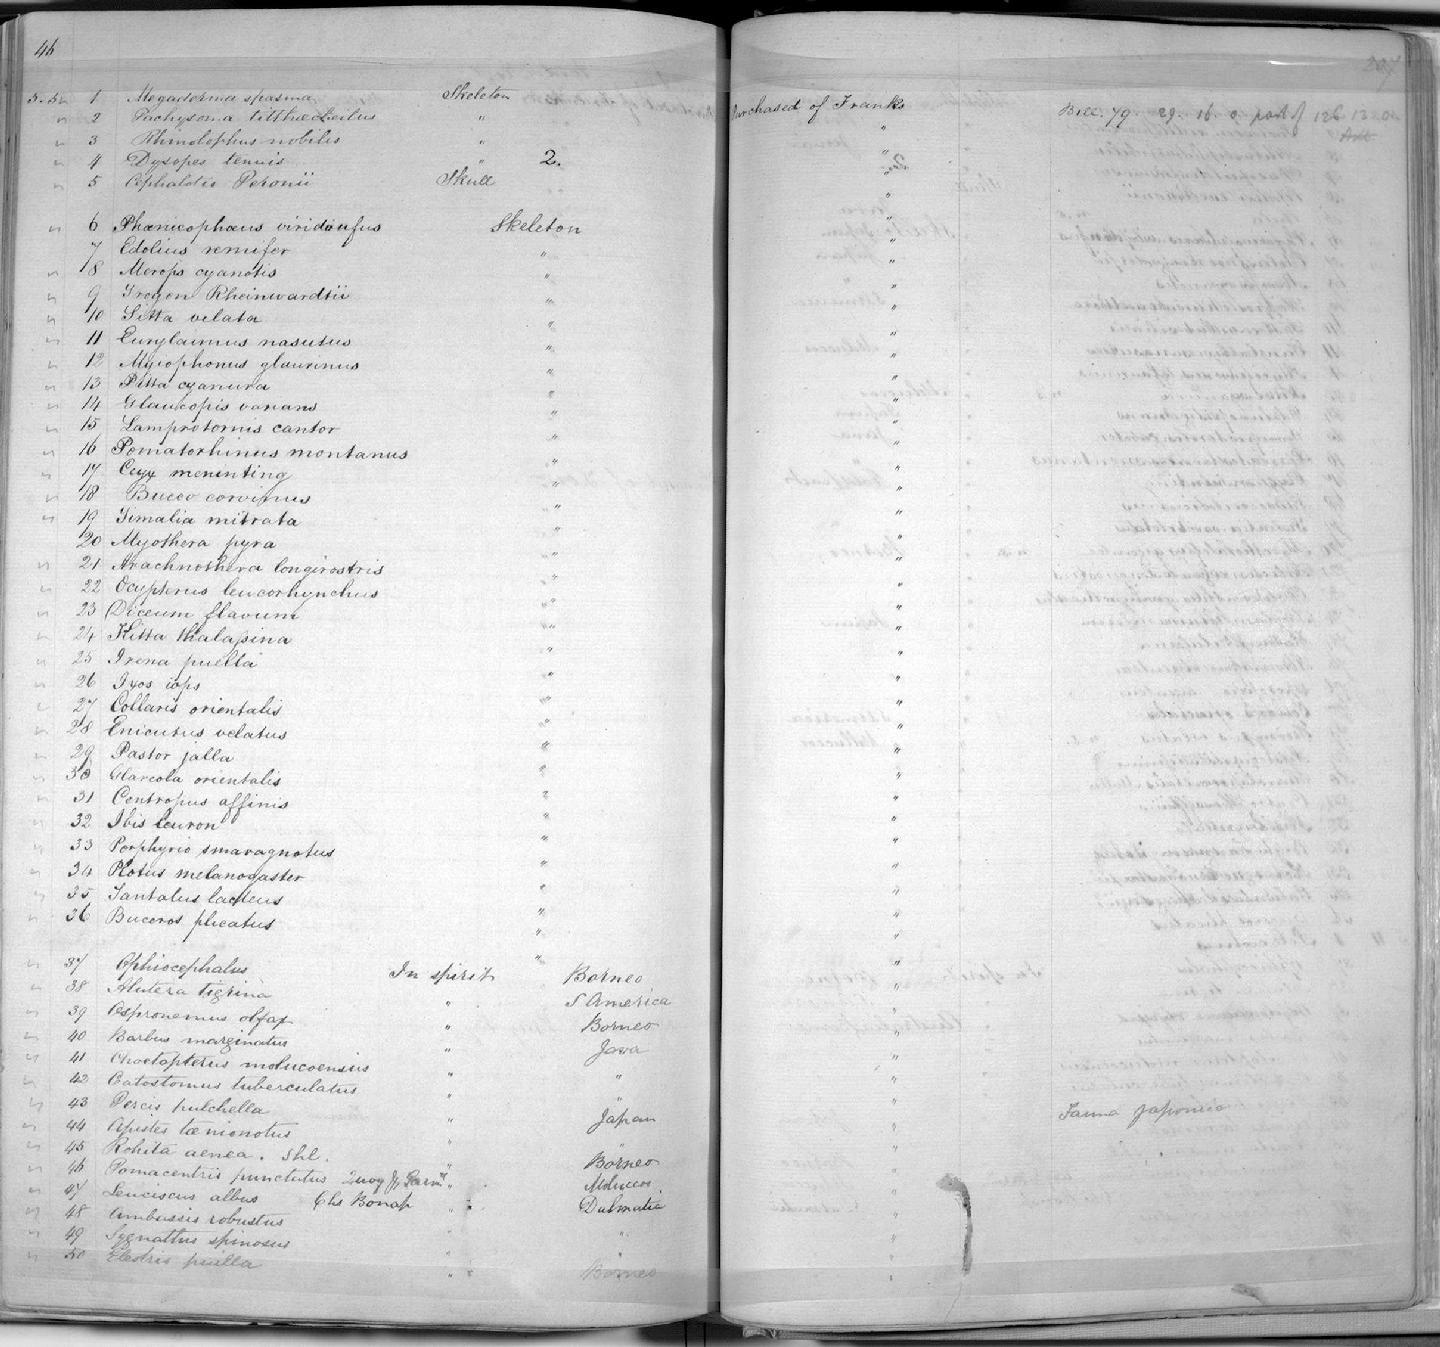 46
207
5.5. 1 Megaderma spasma Skeleton Purchased of Franks Bill. 79. 29. 16. 0 part of 126 13.0
2 Pachysoma titthæcheilus "
3 Rhinolophus nobilis "
4 Dysopes tenuis " 2.
5 Cephalotis Peronii Skull "
6 Phœnicophœus viridirufus Skeleton "
7 Edolius remifer " "
8 Merops cyanotis " "
9 Trogon Rheinwardtii " "
10 Sitta velata " "
11 Eurylaimus nasutus " "
12 Myiophonus glaucinus " "
13 Pitta cyanura " "
14 Glaucopis varians " "
15 Lamprotornis cantor " "
16 Pomatorhinus montanus " "
17 Ceyx meninting " "
18 Bucco corvinus " "
19 Timalia mitrata " "
20 Myothera pyra " "
21 Arachnothera longirostris " "
22 Ocypterus leucorhynchus " "
23 Diceum flavum " "
24 Kitta thalapina " "
25 Irena puella " "
26 Ixos iops " "
27 Collaris orientalis " "
28 Enicurus velatus " "
29 Pastor jalla " "
30 Glareola orientalis " "
31 Centropus affinis " "
32 Ibis leuron " "
33 Porphyrio smaragnotus " "
34 Plotus melanogaster " "
35 Tantalus lacteus " "
36 Buceros plicatus " "
37 Ophiocephalus In spirit Borneo "
38 Alutera tigrina " S America "
39 Ospronemus olfax " Borneo "
40 Barbus marginatus " Java "
41 Choetopterus moluccensis " " "
42 Catostomus tuberculatus " " "
43 Percis pulchella " Japan " Fauna Japonica
44 Apistes tænionotus " " "
45 Rohita aenea. Shl. " Borneo "
46 Pomacentris punctutus Quoy & Gaim " Moluccos "
47 Leuciscus albus Chs Bonap " Dalmatia "
48 Ambassis robustus " " "
49 Sygnattus spinosus " " "
50 Eleotris puella " Borneo "